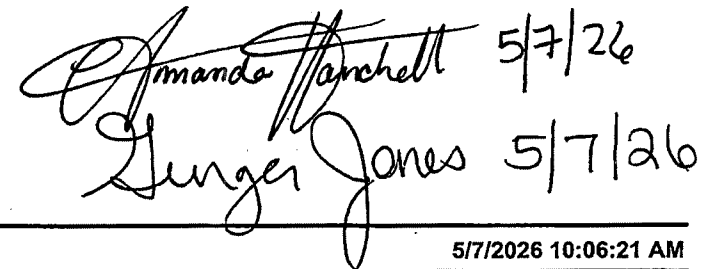 Amanda Hanchett 5/7/26
Ginger Jones 5/7/26
5/7/2026 10:06:21 AM